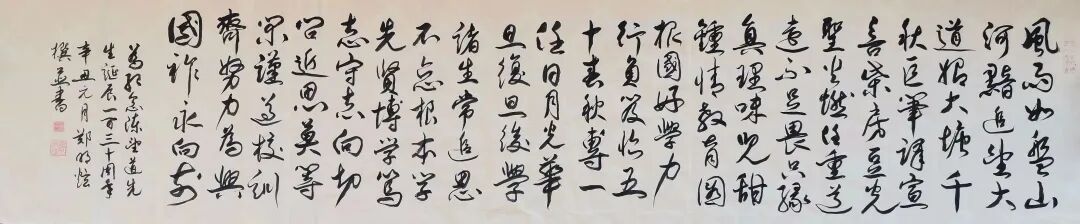 風雨如磐山
河黯追望大
道始大塘千
秋巨筆譯宣
言柴房豆光
聖火燃任重道
遠不足畏只緣
真理味兒甜
鍾情教育圖
報國好學力
行負笈臨五
十春秋專一
任日月光華
旦復旦後學
諸生常追思
不忘根本學
先賢博學篤
志守志向切
問近思莫等
閑謹遵校訓
齊努力為興
國祚永向前
為紀念陳望道先
生誕辰一百三十周年
辛丑元月鄭明
撰並書